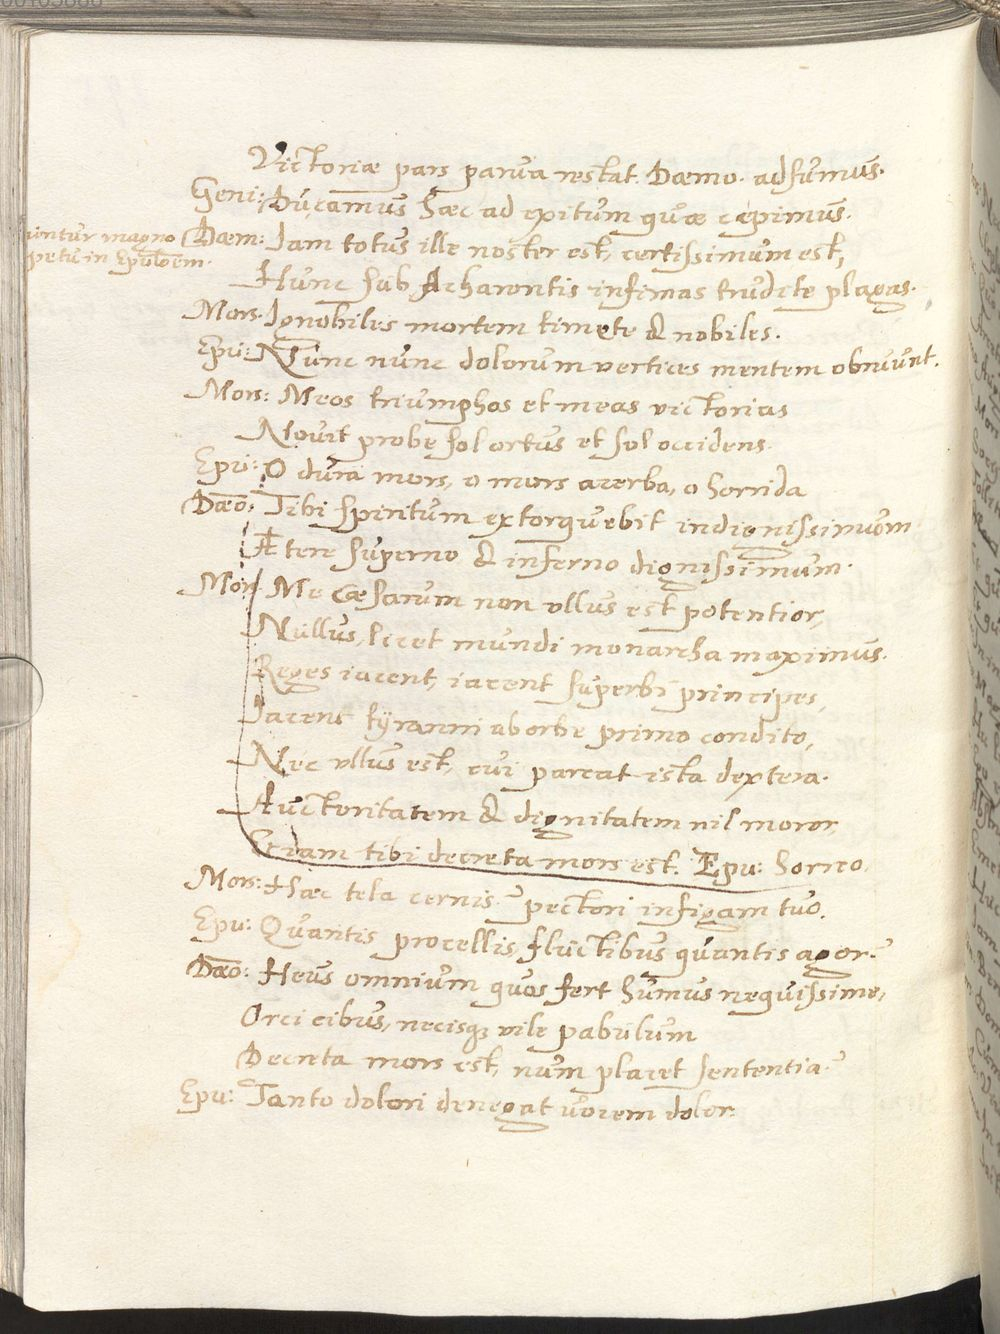 Victoriæ pars parva restat. Dæmo. adsumus.
Geni: Ducamus hæc ad exitum quæ cepimus.
untur magno
petu in Epulōem.
Dæm: Jam totus ille noster est, certissimum est,
Hunc sub Acharontis infimas trudete plagas.
Mors. Ignobiles mortem timete & nobiles.
Epu: Nunc nunc dolorum vertices mentem obruunt.
Mors: Meos triumphos et meas victorias
Novit probe sol ortus et sol occidens.
Epu: O dura mors, o mors acerba, o horrida
Dæō: Tibi spiritum extorquebit indignissimum
Æthere superno & inferno dignissimum.
Mors Me Cæsarum non ullus est potentior,
Nullus, licet mundi monarcha maximus.
Reges iacent, iacent superbi principes,
Jacent tÿranni ab orbe primo condito,
Nec ullus est, cui parcat ista dextera.
Auctoritatem & dignitatem nil moror,
Etiam tibi decreta mors est. Epu: horreo.
Mors: Hæc tela cernis? pectori infigam tuo.
Epu: Quantis procellis, fluctibus quantis agor?
Dæō: Heus omnium quos fert humus nequissime,
Orci cibus, necisq3 vile pabulum
Decreta mors est, num placet sententia?
Epu: Tanto dolori denegat vocem dolor.